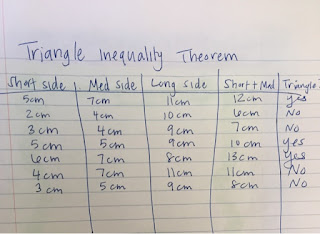 Triangle Inequality Theorem
Short side Med side Long side Short + Med Triangle?
5cm 7cm 11cm 12cm yes
2cm 4cm 10cm 6cm No
3cm 4cm 9cm 7cm No
5cm 5cm 9cm 10cm yes
6cm 7cm 8cm 13cm Yes
4cm 7cm 11cm 11cm No
3cm 5cm 9cm 8cm No